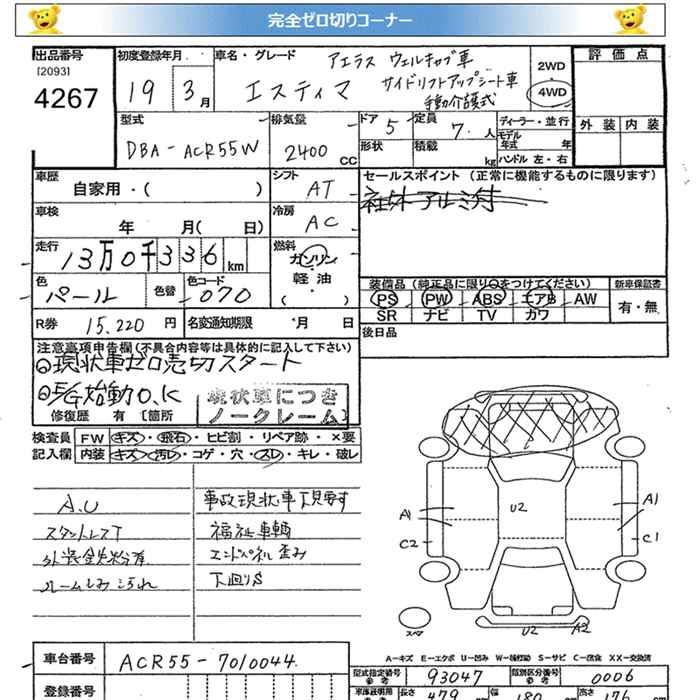 完全ゼロ切りコーナー
出品番号 初度登録年月 車名・グレード アエラス ウェルキャブ車 2WD 評価点
[2093] 4267 19 3月 エスティマ サイドリフトアップシート車 4WD
手動介護式
型式 排気量 ドア 5 定員 7.人 ディーラー・並行 外装 内装
DBA-ACR55W 2400 CC 形状 積載 kg モデル年式 年
ハンドル 左・右
車歴 自家用・( ) シフト AT セールスポイント (正常に機能するものに限ります)
社外アルミ付
車検 年 月( 日) 冷房 AC
走行 13万0千336km 燃料 ガソリン
軽油
( )
色 パール 色替 色コード 070
装備品 (純正品に限り○をつけてください) 新車保証書
PS PW ABS エアB AW 有・無
SR ナビ TV カワ
R券 15,220円 名変通知期限 月 日 後日品
注意事項申告欄(不具合内容等は具体的に記入して下さい)
◎現状車ゼロ売切スタート
◎E/G始動O.K
現状車につき
ノークレーム
修復歴 有 [箇所 ]
検査員 FW キズ・飛石・ヒビ割・リペア跡・×要
記入欄 内装 キズ・汚レ・コゲ・穴・スレ・キレ・破レ
A.U 事故現状車下見要す
スタットレスT 福祉車輌
エンドパネル歪み
ルームしみ汚れ 下廻りS
U2
A1 A1
C2 C1
スペア U2 A2
A-キズ E-エクボ U-凹み W-補修跡 S-サビ C-腐食 XX-交換済
車台番号 ACR55-7010044
型式指定番号 参考 93047 類別区分番号 参考 0006
登録番号 車庫証明用 参考 長さ 479 cm 幅 180 cm 高さ 175 cm